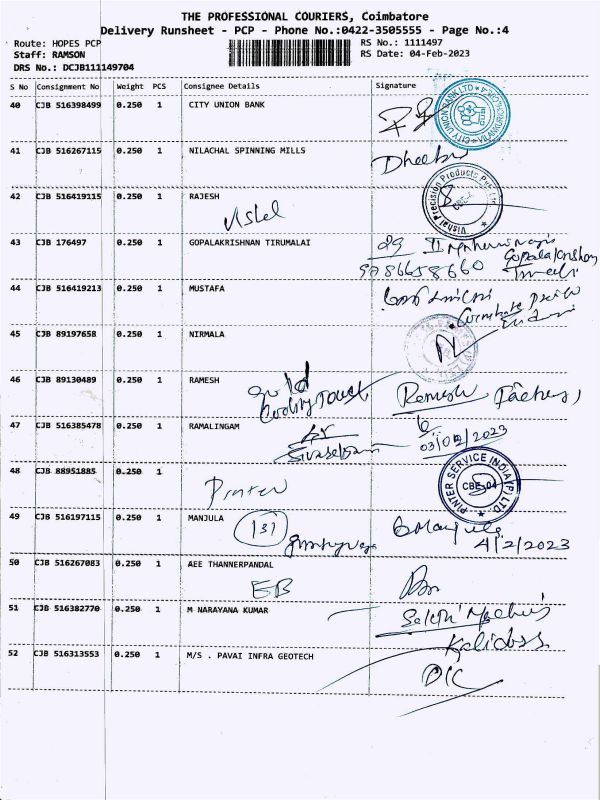 THE PROFESSIONAL COURIERS, Coimbatore
Delivery Runsheet - PCP - Phone No.:0422-3505555 - Page No.:4
Route: HOPES PCP
RS No.: 1111497
Staff: RAMSON
RS Date: 04-Feb-2023
DRS No.: DCJB111149704
S No Consignment No Weight PCS Consignee Details Signature
40 CJB 516398499 0.250 1 CITY UNION BANK
CITY UNION BANK LTD
41 CJB 516267115 0.250 1 NILACHAL SPINNING MILLS
42 CJB 516419115 0.250 1 RAJESH
Vishal Precision Products Pvt Ltd
43 CJB 176497 GOPALAKRISHNAN TIRUMALAI
9786658660
44 CJB 516419213 0.250 1 MUSTAFA
45 CJB 89197658 0.250 1 NIRMALA
46 CJB 89130489 0.250 1 RAMESH
Ramesh
47 CJB 516385478 0.250 1 RAMALINGAM
03/02/2023
48 CJB 88951885 0.250 1
Pinter
PINTER SERVICE INDIA (P) LTD.
CBE-04
49 CJB 516197115 0.250 1 MANJULA
131
4/2/2023
50 CJB 516267083 0.250 1 AEE THANNERPANDAL
EB
51 CJB 516382770 0.250 1 M NARAYANA KUMAR
Kalidoss
52 CJB 516313553 0.250 1 M/S . PAVAI INFRA GEOTECH